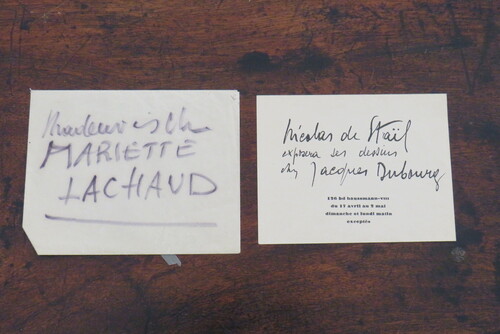 Mademoiselle
MARIETTE
LACHAUD
Nicolas de Staël
exposera ses dessins
chez Jacques Dubourg
126 bd haussmann-vııı
du 17 avril au 2 mai
dimanche et lundi matin
exceptés